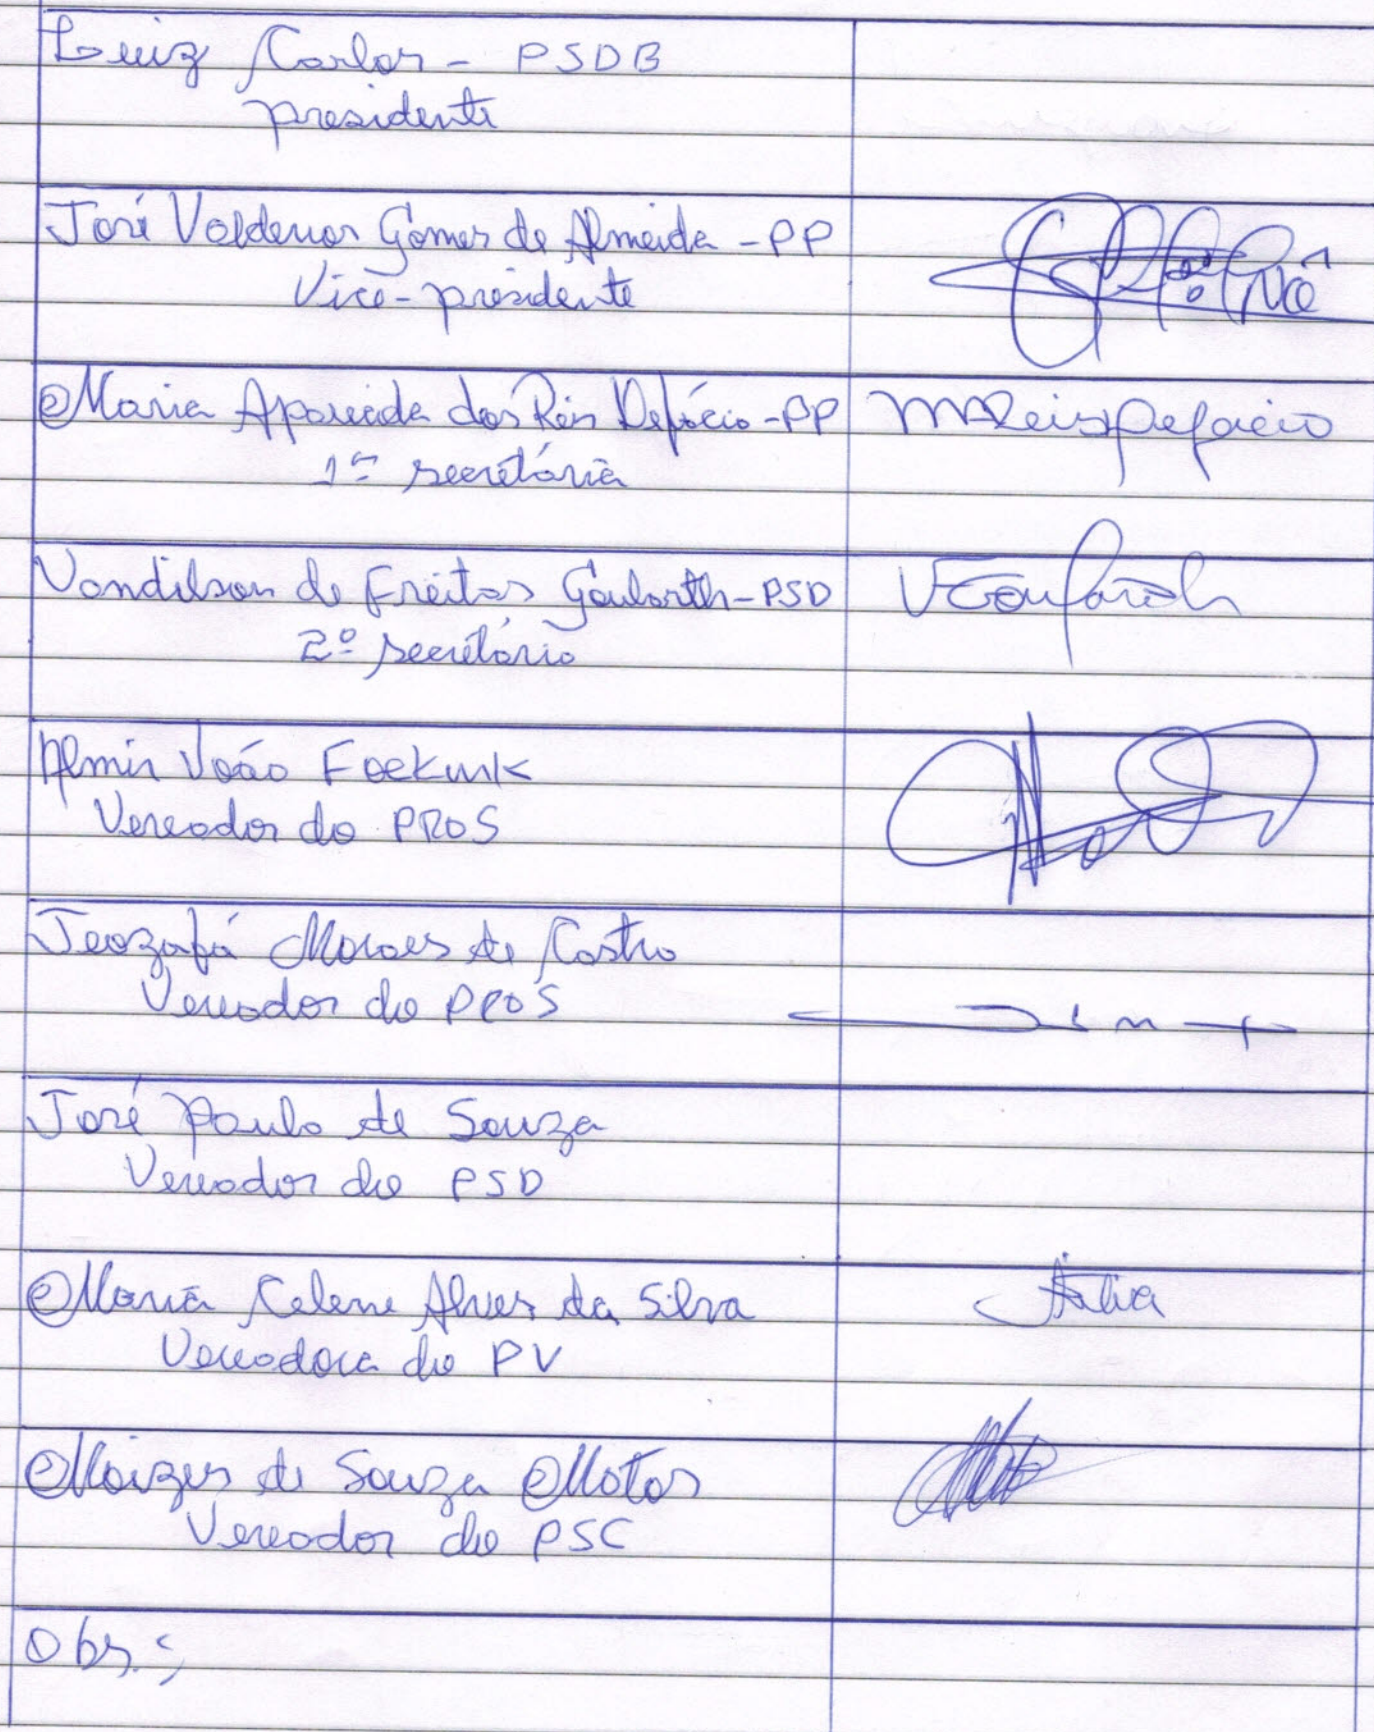 Luiz Carlos - PSDB
presidente
José Valdenor Gomes de Almeida - PP
Vice-presidente
Maria Aparecida dos Reis Defácio - PP MAReisDefacio
1ª secretária
Vandilson de Freitas Goularth - PSD VGoularth
2º secretário
Almir João Foekink
Vereador do PROS
Jeozafá Moraes de Castro
Vereador do PROS
José Paulo de Souza
Vereador do PSD
Maria Celene Alves da Silva
Vereadora do PV
Moizes de Souza Matos
Vereador do PSC
Obs.: